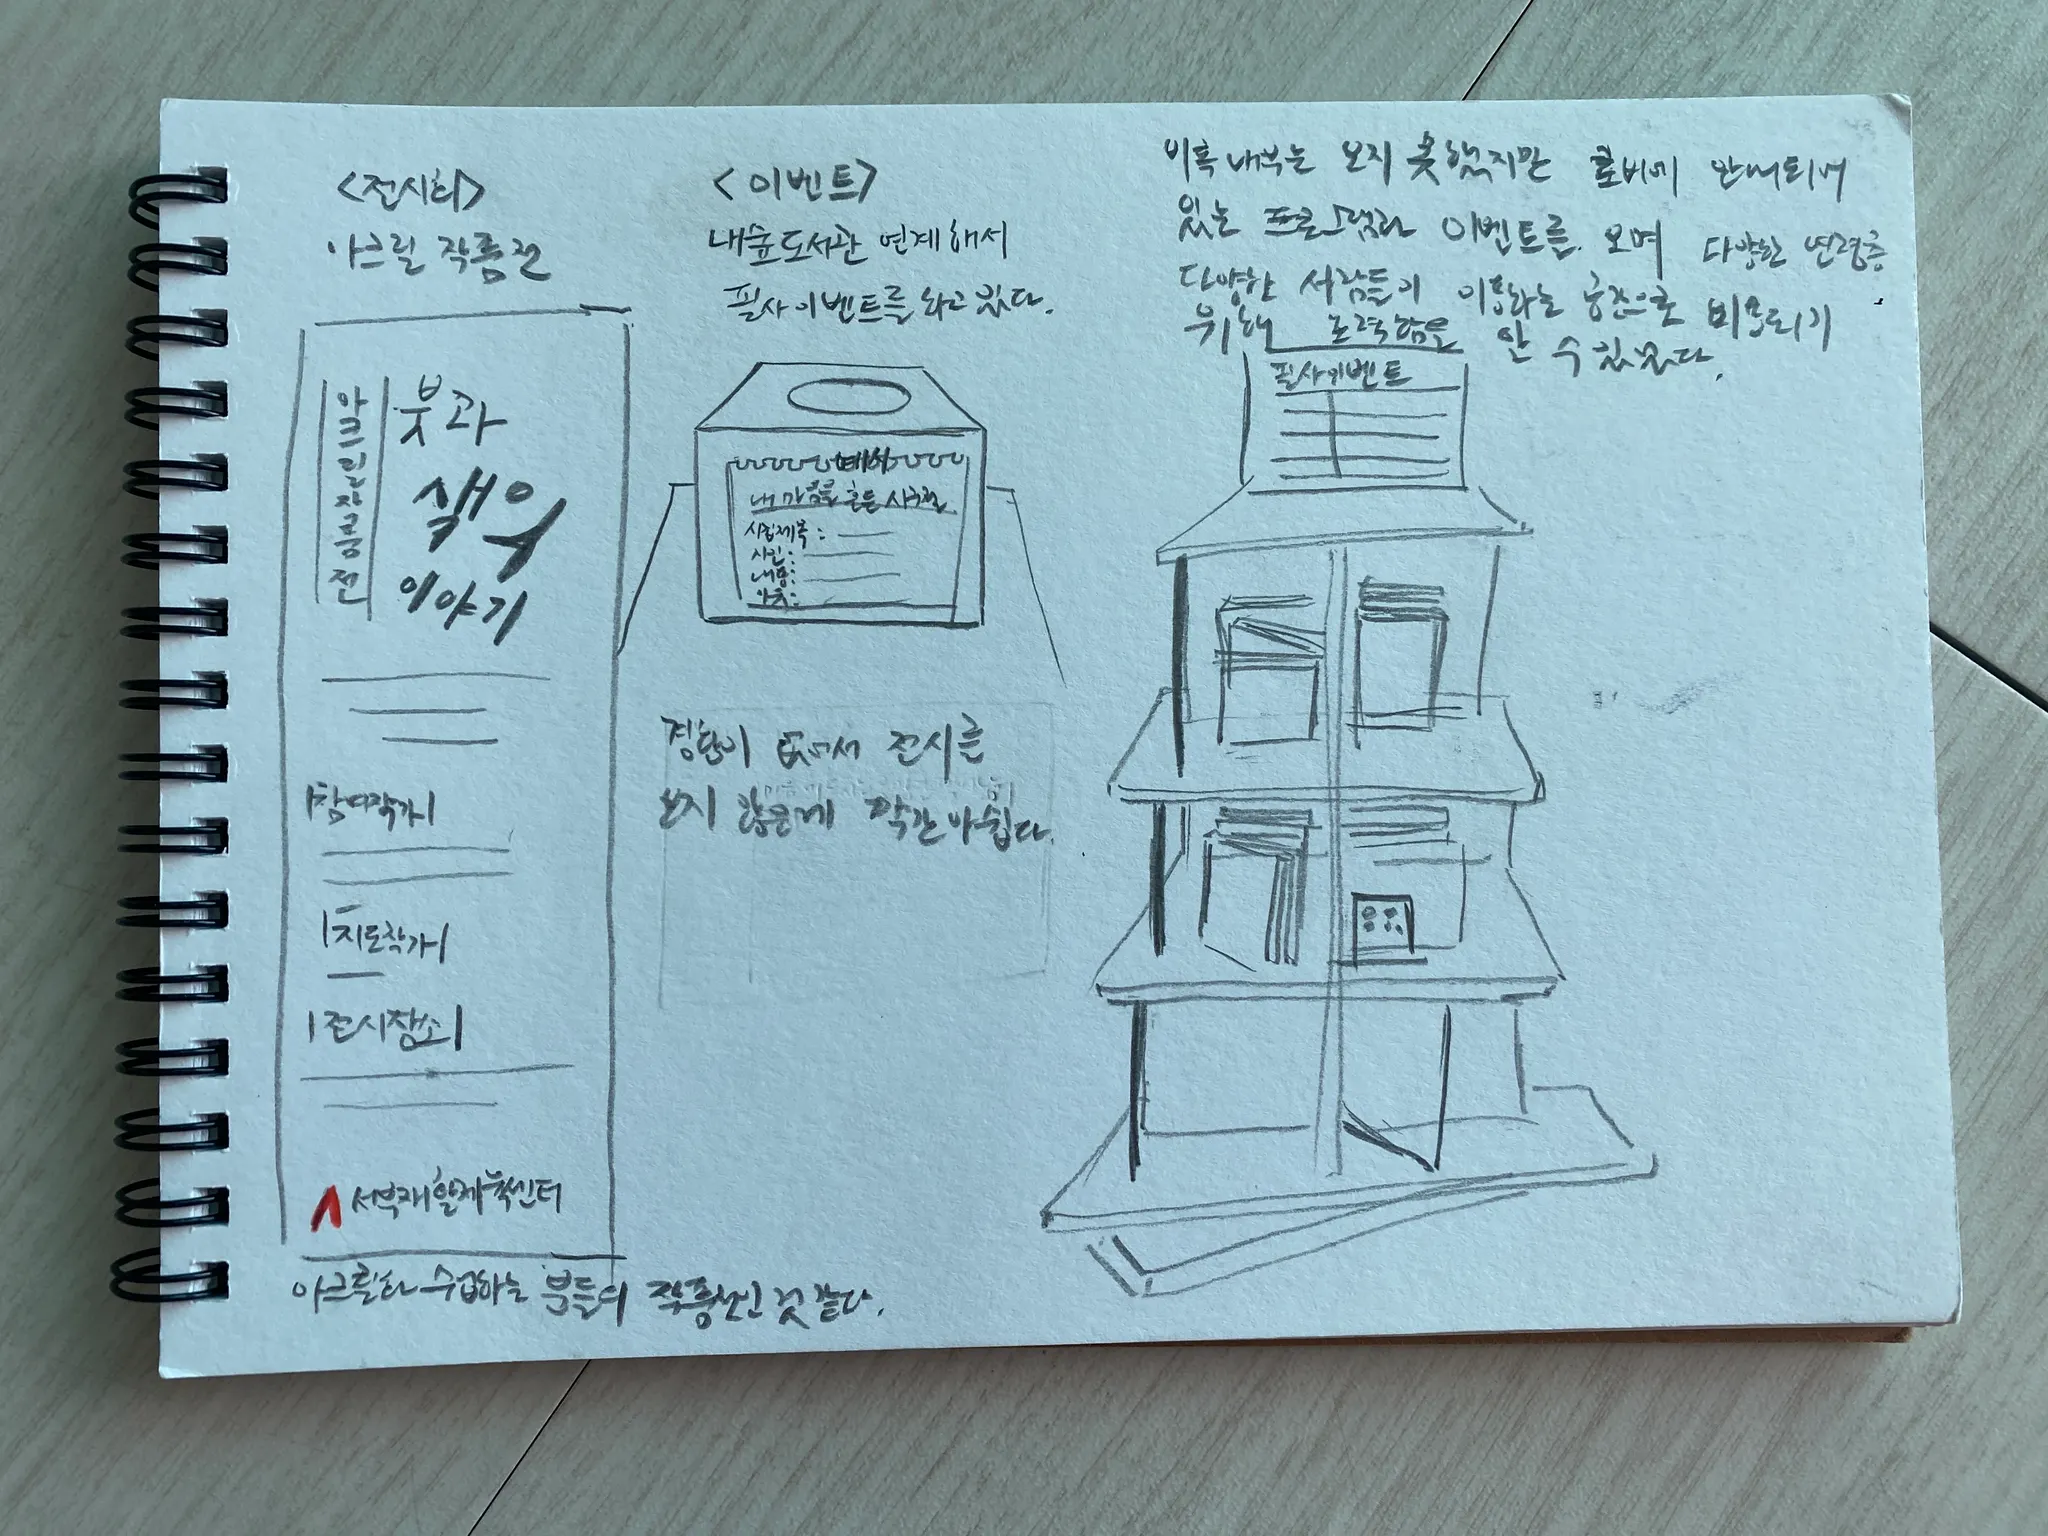 <전시회>
아크릴 작품전
아크릴작품전
붓과
색의
이야기
|참여작가|
|지도작가|
|전시장소|
서부재활체육센터
아크릴화 수업하는 분들의 작품전인 것 같다.
<이벤트>
내숲도서관 연계해서
필사이벤트를 하고 있다.
예시
내 마음을 흔든 시 구절
시집제목:
시인:
내용:
이유:
정황이 없어서 전시를
보지 않은게 약간 아쉽다.
비록 내부는 보지 못했지만 로비에 안내되어
있는 프로그램과 이벤트를 보며 다양한 연령층
다양한 사람들이 이용하는 공간으로 비춰지기
위해 노력함을 알 수 있었다.
필사이벤트